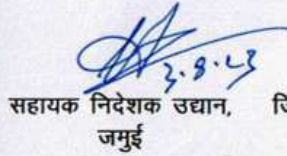 3.8.23
सहायक निदेशक उद्यान, जि
जमुई